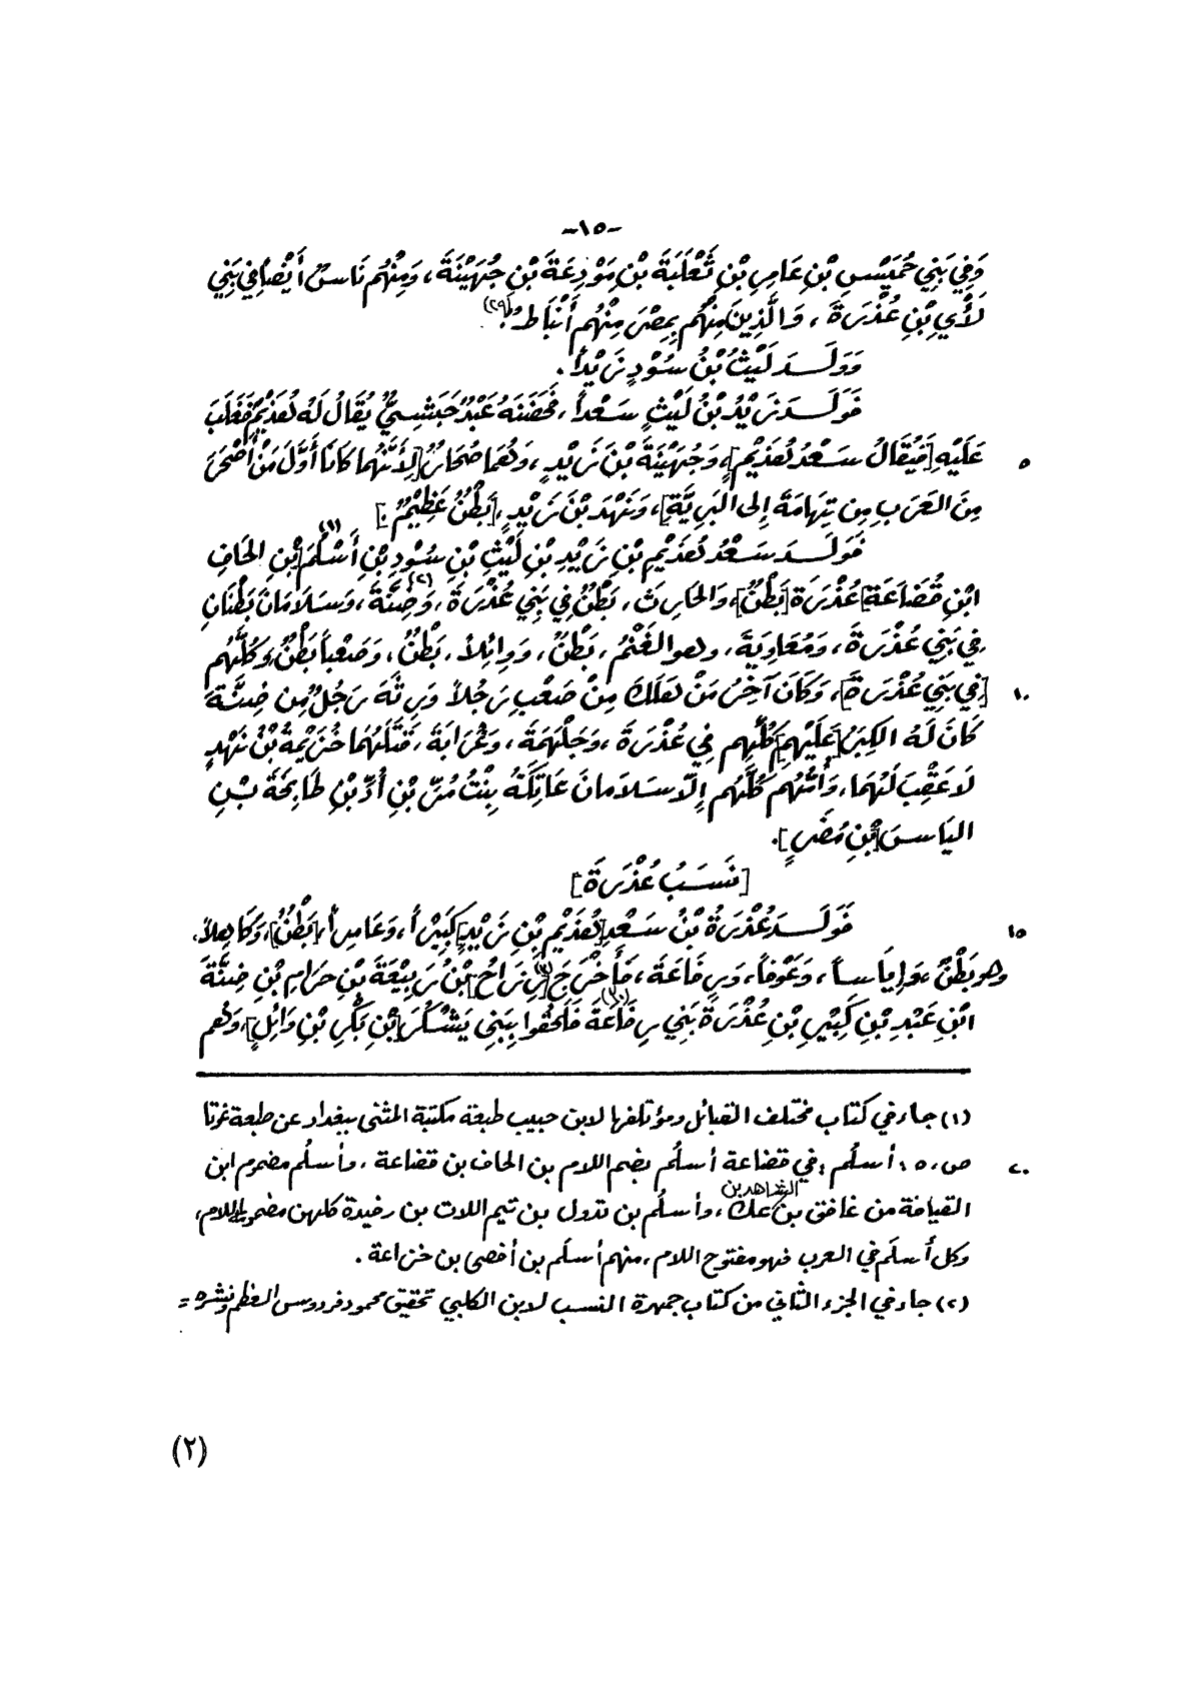 -١٥-
وَفِي بَنِي حُمَيْسِ بْنِ عَامِرِ بْنِ ثَعْلَبَةَ بْنِ مَوْدِعَةَ بْنِ جُهَيْنَةَ، وَمِنْهُم نَاسٌ أَيْضاً فِي بَنِي
لَأْيِ بْنِ عُذْرَةَ، وَالَّذِينَ مِنْهُم بِمِصْرَ مِنْهُم أَنْبَاطٌ.(٢٩)
وَوَلَــدَ لَيْثُ بْنُ سُوْدٍ زَيْداً.
فَوَلَــدَ زَيْدُ بْنُ لَيْثٍ سَعْداً، فَحَضَنَهُ عَبْدٌ حَبَشِيٌّ يُقَالُ لَهُ هُذَيْمٌ فَغَلَبَ
عَلَيْهِ [فَيُقَالُ سَعْدُ هُذَيْمٍ]، وَجُهَيْنَةَ بْنَ زَيْدٍ، وَهُمَا صُحَارٌ [لِأَنَّهُما كَانَا أَوَّلَ مَنْ أَصْحَرَ ٥
مِنَ العَرَبِ مِن تِهَامَةَ إِلى البَرِيَّةِ]، وَنَهْدَ بْنَ زَيْدٍ، [بَطْنٌ عَظِيْمٌ.]
فَوَلَــدَ سَعْدُ هُذَيْمِ بْنِ زَيْدِ بْنِ لَيْثِ بْنِ سُوْدِ بْنِ أَسْلُمَ(١) [بْنِ الحَافِ
ابْنِ قُضَاعَةَ] عُذْرَةَ [بَطْنٌ]، وَالحَارِثَ، بَطْنٌ فِي بَنِي عُذْرَةَ، وَضِنَّةَ(٢)، وَسَلَامَانَ بَطْنَانِ
فِي بَنِي عُذْرَةَ، وَمُعَاوِيَةَ، وهو الغَنْمُ، بَطْنٌ، وَوَائِلاً، بَطْنٌ، وَصَعْباً بَطْنٌ وَكُلُّهُم
[فِي بَنِي عُذْرَةَ]، وَكَانَ آخِرُ مَنْ هَلَكَ مِنْ صَعْبٍ رَجُلاً وَرِثَهُ رَجُلٌ مِن ضِنَّةَ ١٠
كَانَ لَهُ الكِبَرُ [عَلَيْهِم] كُلِّهِم فِي عُذْرَةَ، وَجَلْهَمَةَ، وَعُرَابَةَ، قَتَلَهُمَا خُزَيْمَةُ بْنُ نَهْدٍ
لَا عَقِبَ لَهُمَا، وَأُمُّهُم كُلُّهُم إِلّا سَلَامانَ عَاتِكَةُ بِنْتُ مُرِّ بْنِ أُدِّ بْنِ طَابِخَةَ بْـنِ
اليَاسَ [بْنِ مُضَرٍ].
[نَسَبُ عُذْرَةَ]
فَوَلَــدَ عُذْرَةُ بْنُ سَعْدِ [هُذَيْمِ بْنِ زَيْدٍ] كَبِيْراً، وَعَامِراً، [بَطْنٌ]، وَكَاهِلاً، ١٥
وهو بَطْنٌ، وَإِيَاساً، وَعَوْفاً، وَرِفَاعَةَ، فَأَخْرَجَ [رِزَاحُ] بْنُ رَبِيْعَةَ بْنِ حَرَامِ بْنِ ضِنَّةَ
ابْنِ عَبْدِ بْنِ كَبِيْرِ بْنِ عُذْرَةَ بَنِي رِفَاعَةَ فَلَحِقُوا بِبَنِي يَشْكُرَ [بْنِ بَكْرِ بْنِ وَائِلٍ]، وَهُم
(١) جاء في كتاب مختلف القبائل ومؤتلفها لابن حبيب طبعة مكتبة المثنى ببغداد عن طبعة غوتا
ص، ٥: أسلُم: في قضاعة أسلُم بضم اللام بن الحاف بن قضاعة، وأسلُم مضموم ابن ٢٠
القيافة من غافق بن الشاهد بن عك، وأسلُم بن تدول بن تيم اللات بن رفيدة كلهن مضموم اللام،
وكل أسلَم في العرب فهو مفتوح اللام، منهم أسلَم بن أفصى بن خزاعة.
(٢) جاء في الجزء الثاني من كتاب جمهرة النسب لابن الكلبي تحقيق محمود فردوس العظم ونشره =
(٢)